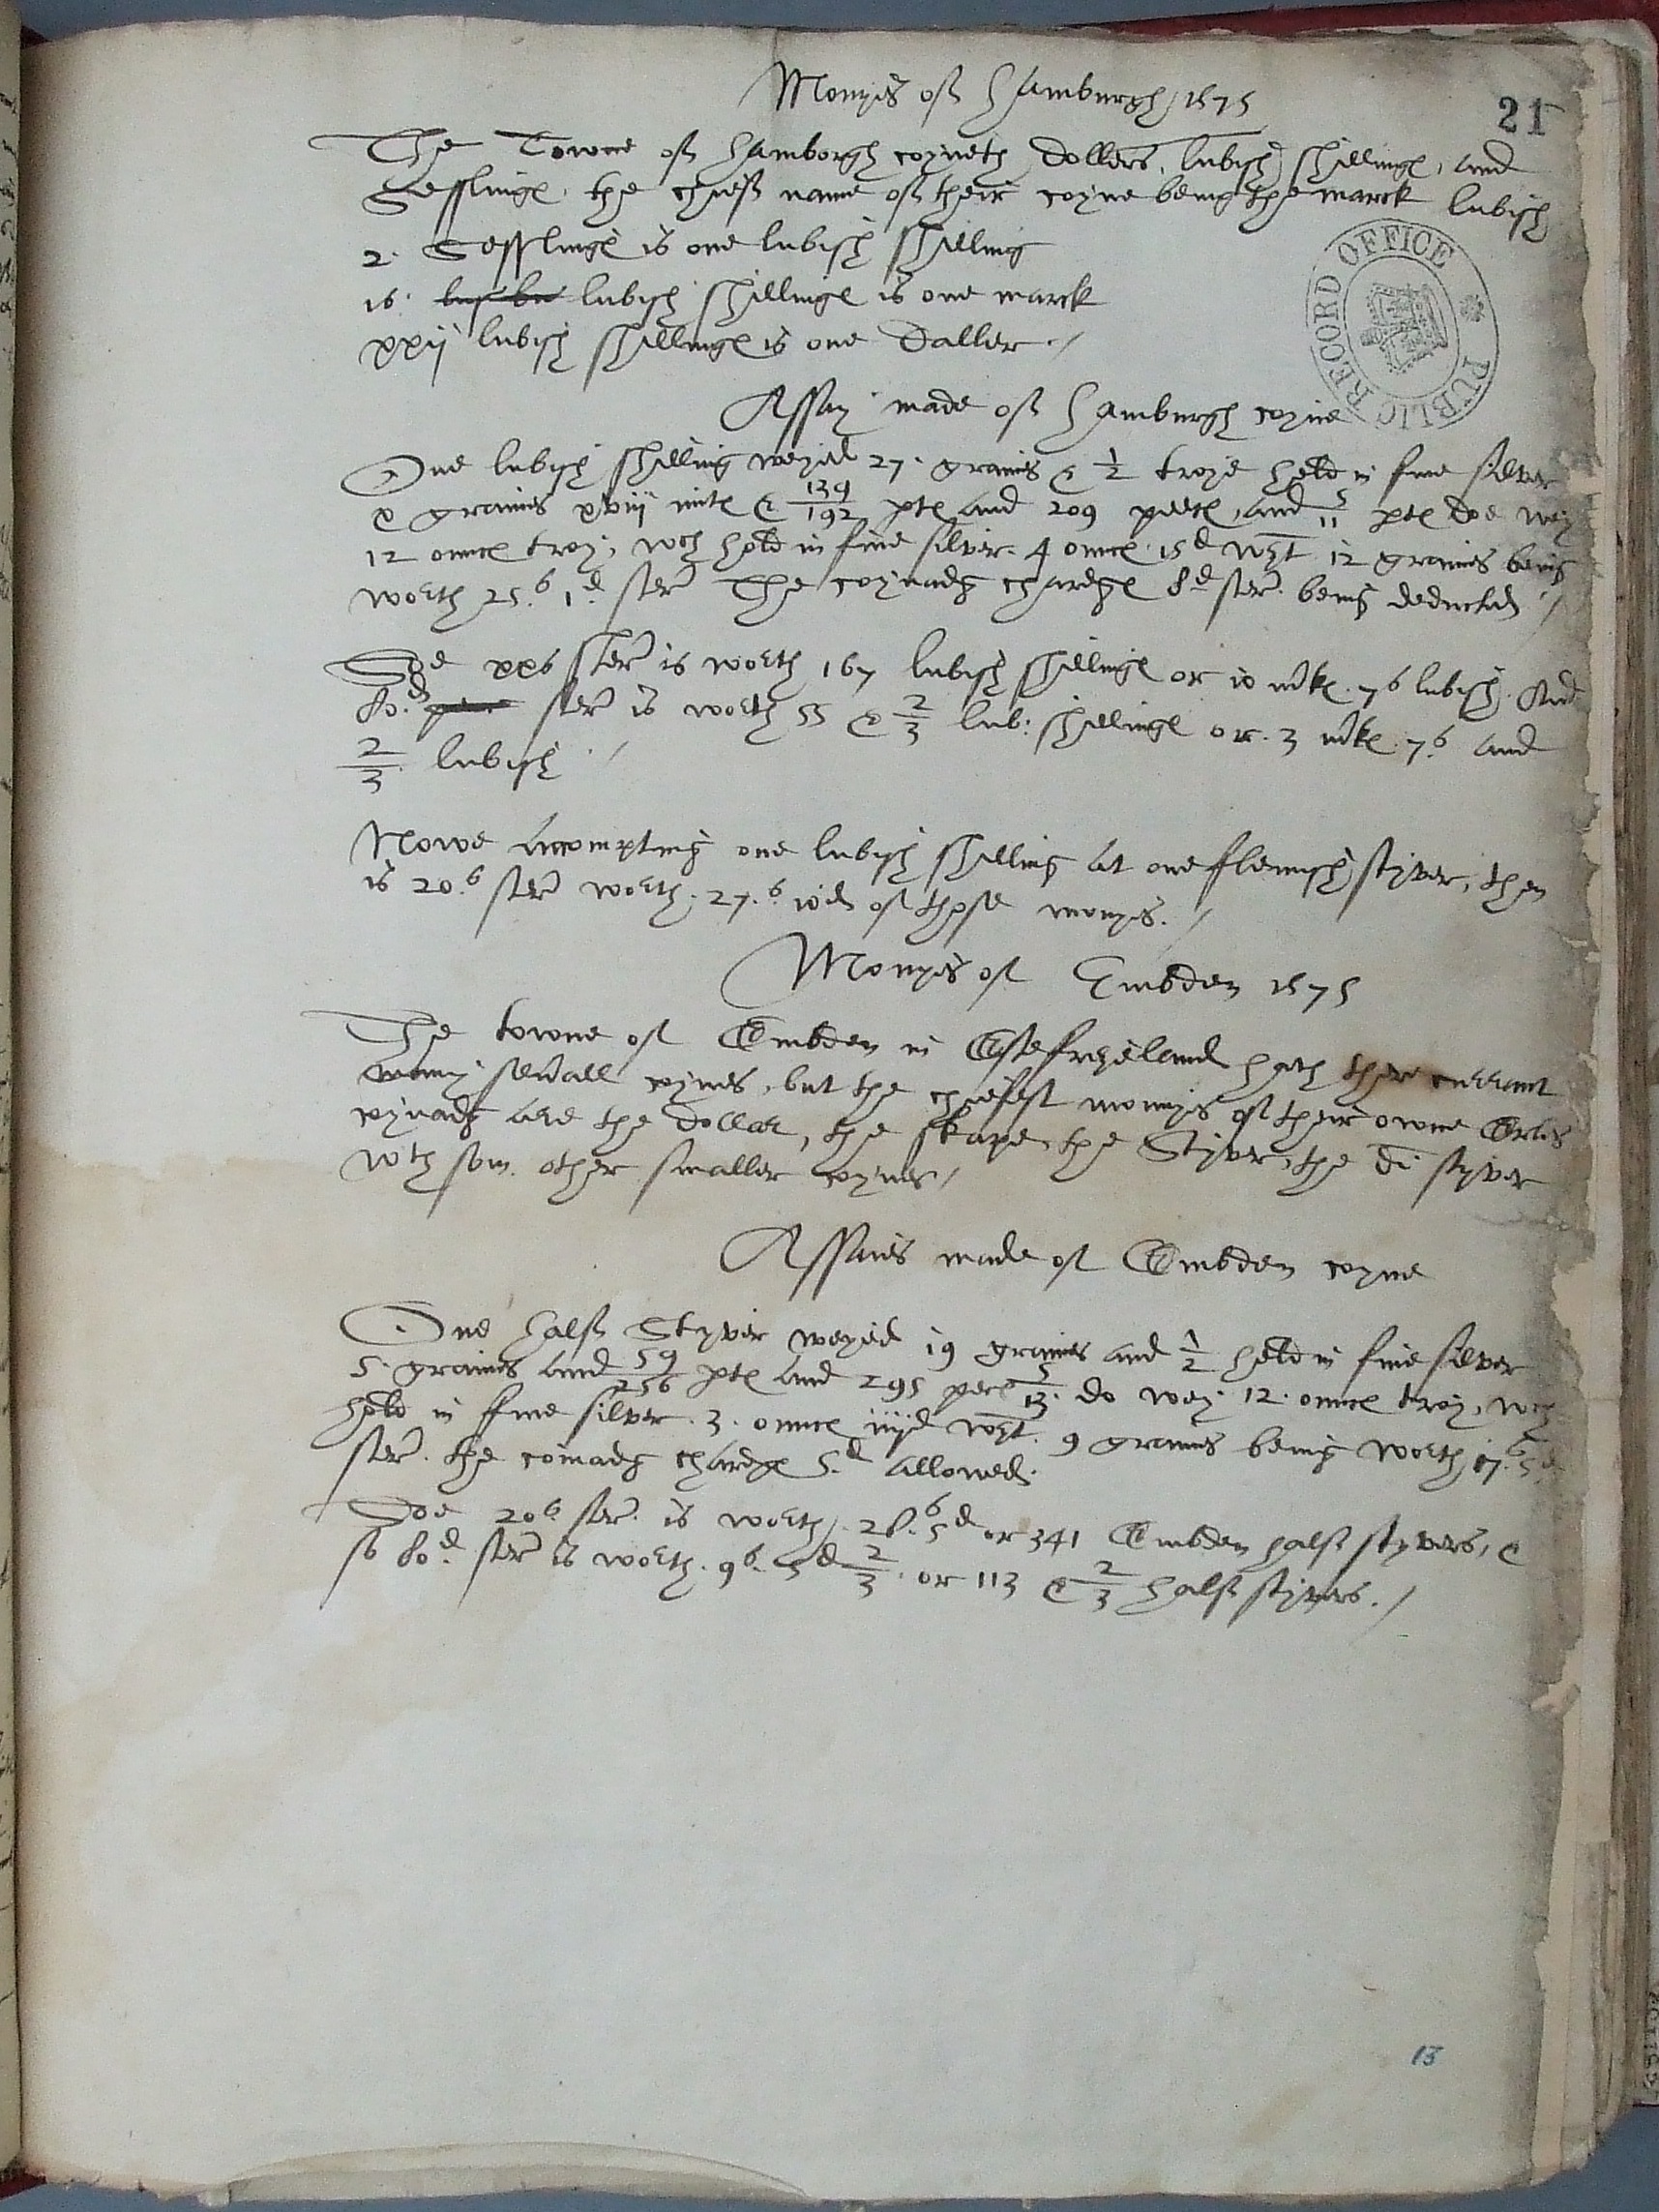 Monyes off Hamburgh 1575
21
The Towne off Hamborgh coyneth Dollers, lubish shillinges, and
Sesslinges, the chieff name off their coyne being the marck lubish
2. Sesslinges is one lubish shilling
16. lubish shillinges is one marck
xxxij lubish shillinges is one Daller
PUBLIC RECORD OFFICE
Assay made off Hamburgh coyne
One lubish shilling weyed 27. graines & 1/2 troye hold in fine silver
x graines xviij mites & 139/192 ptes and 209 peeces, and 5/11 ptes doe wey
12 ounces troy, wch hold in fine silver. 4 ounces 15d wgt 12 graines being
worth 25.s 1.d ster The coynadg chardges 8d ster. being deducted
Soe xxs ster is worth 167 lubish shillinges or 10 mkes. 7s lubish. And
80.d ster is worth 55 & 2/3 lub: shillinges or. 3 mkes. 7.s and
2/3. lubish
Nowe accompting one lubish shilling at one flemish styver, then
is 20.s ster worth. 27.s 10d of those monyes.
Monyes of Embden 1575
The towne of Embden in Estefreyeland hath ther currant
many severall coynes, but the chiefest monnyes of their owne Erles
coynadg are the dollar, the skape, the Styver, the di styver
wth som other smaller coynes
Assaies made of Embden coyne
One halff Styver weyed 19 graines and 1/2 hold in fine silver
5. graines and 59/256 ptes and 295 peces 5/13. do wey. 12. ounces troy, wch
hold in fine silver. 3. ounces iiijd wgt. 9 graines being worth 17.s 5d
ster. the coinadg chardges 5.d allowed.
Soe 20s ster. is worth. 28.s 5d or 341 Embden halff styvers, &
so 80.d ster is worth. 9s. 5d 2/3. or 113 & 2/3 halff styvers.
13